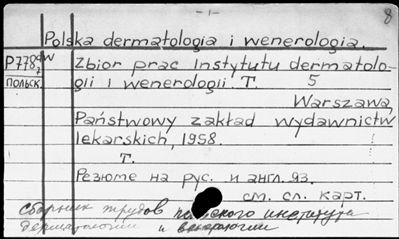 -1-
8
Polska dermatologia i wenerologia.
P778,w
7
польск.
Zbior prac Instytutu dermatolo-
gii i wenerologii. T. 5
Warszawa,
Państwowy zakład wydawnictw
lekarskich, 1958.
T.
Резюме на рус. и англ. яз.
см. сл. карт.
сборник трудов польского института
дерматологии и венерологии